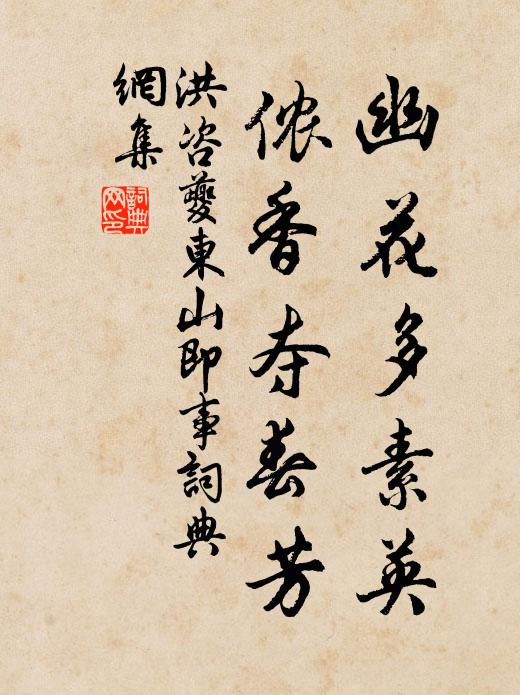 幽花多素英
侬香夺春芳
洪咨夔東山即事詞典
網集
詞典
网印